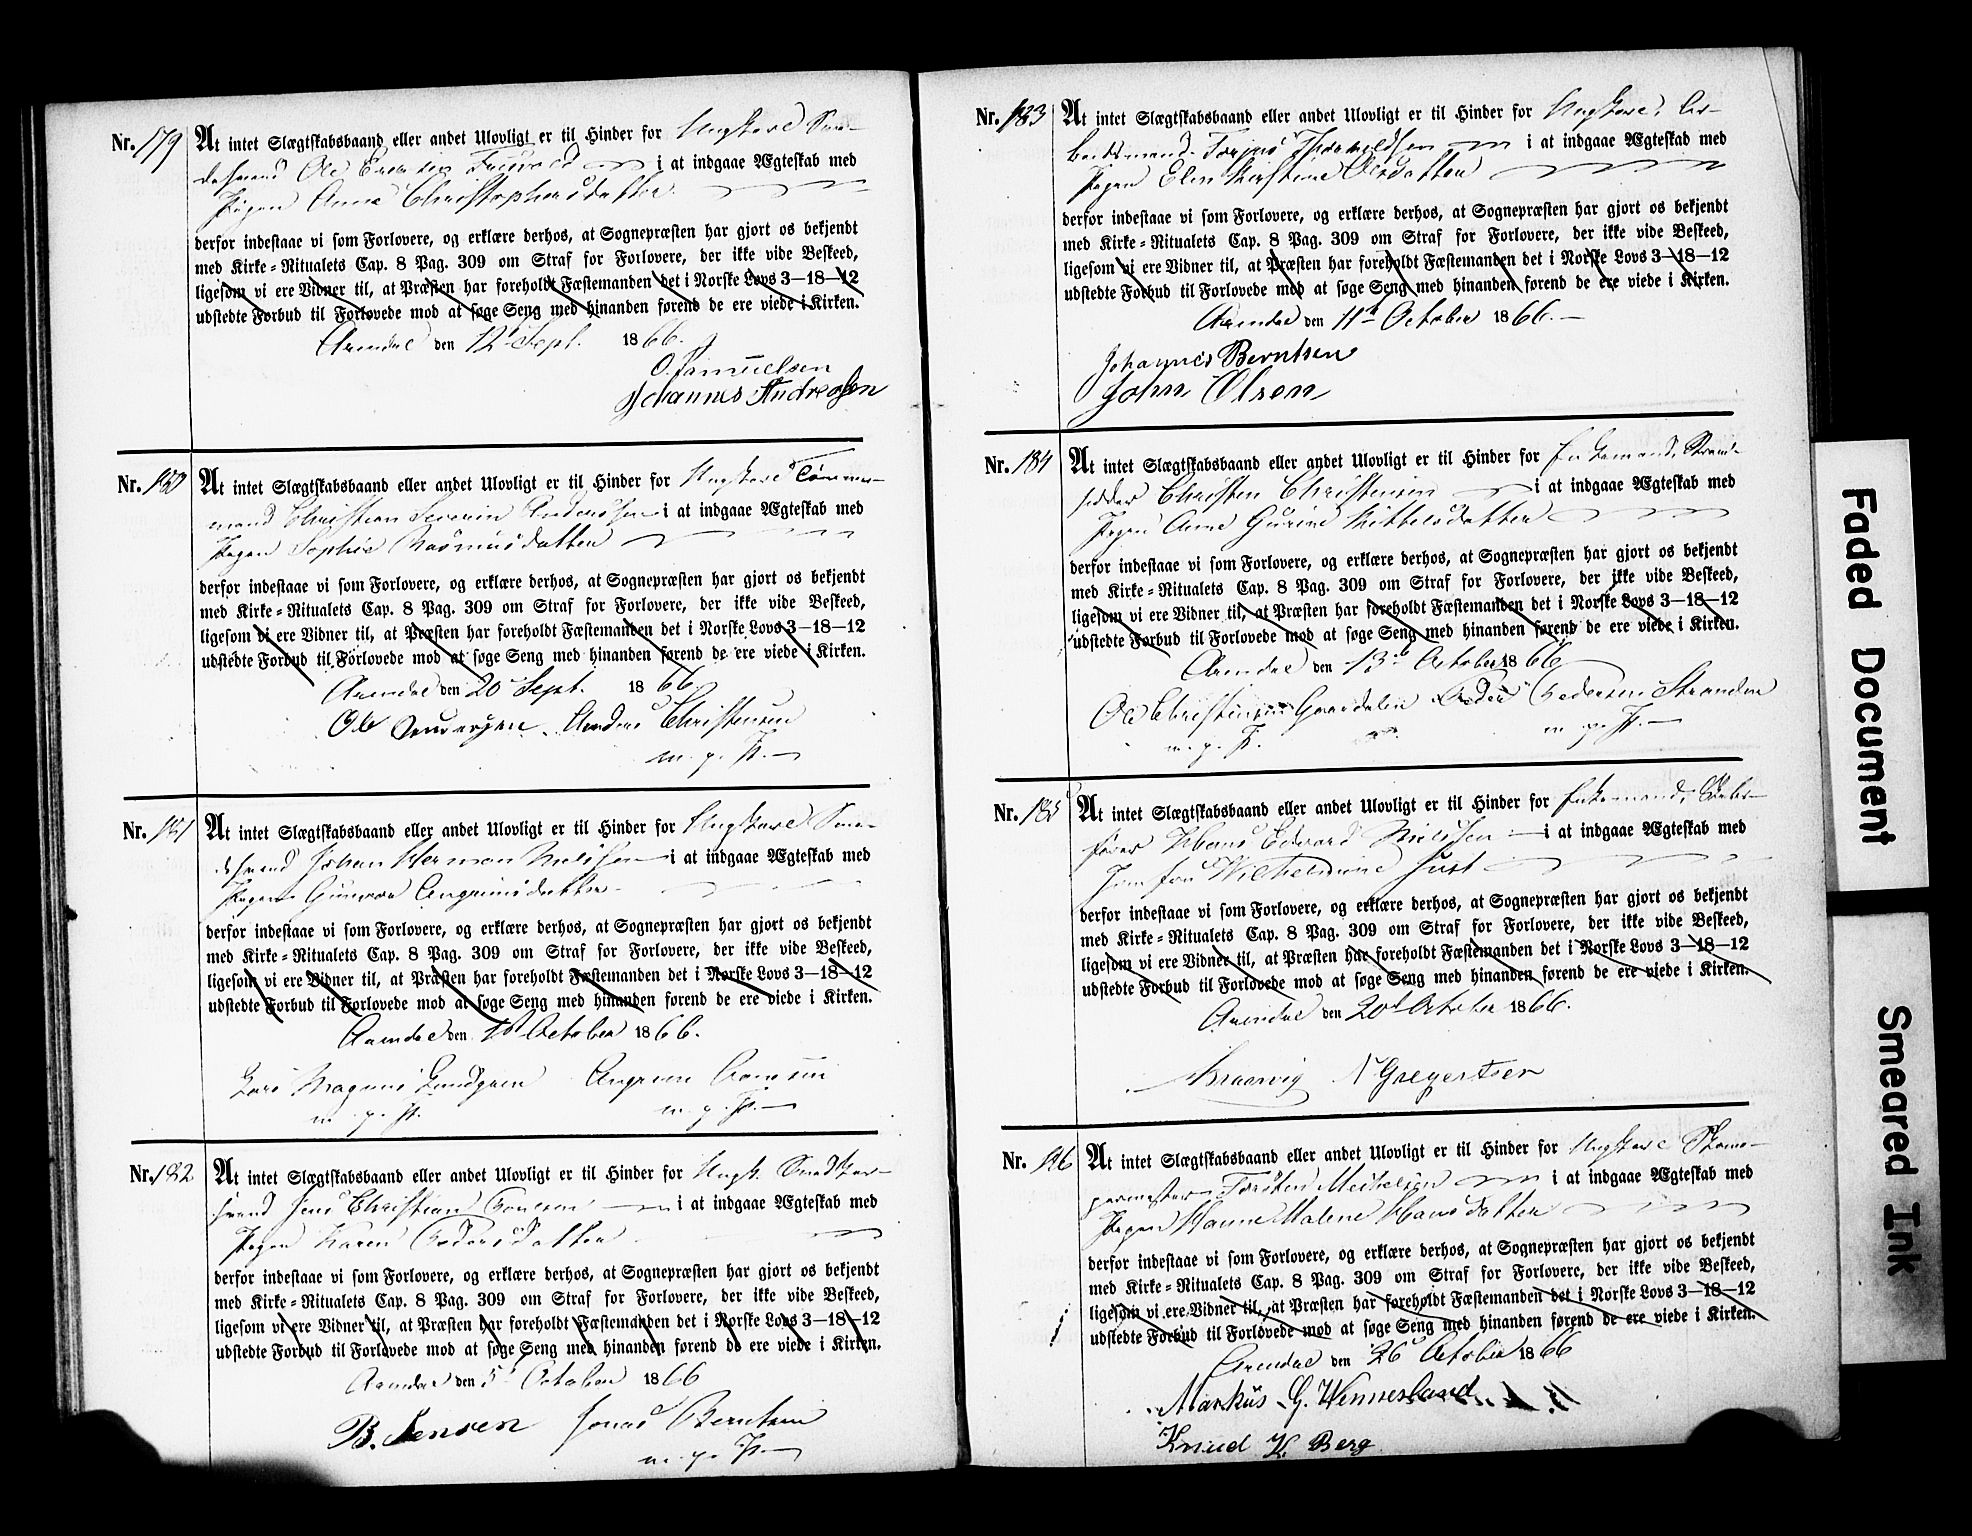 Nr. 179 At intet Slægtskabsbaand eller andet Ulovligt er til Hinder for Ungkarl
Ole i at indgaae Ægteskab med
Pigen Anne Christophersdatter
derfor indestaae vi som Forlovere, og erklære derhos, at Sognepræsten har gjort os bekjendt
med Kirke-Ritualets Cap. 8 Pag. 309 om Straf for Forlovere, der ikke vide Beskeed,
ligesom vi ere Vidner til, at Præsten har foreholdt Fæstemanden det i Norske Lovs 3—18—12
udstedte Forbud til Forlovede mod at søge Seng med hinanden førend de ere viede i Kirken.
Arendal den 12 Sept. 1866.
O. Samuelsen
Johannes Andreasen
Nr. 180 At intet Slægtskabsbaand eller andet Ulovligt er til Hinder for Ungkarl Tømmer-
mand Christian Severin Anderssen i at indgaae Ægteskab med
Pigen Sophie Rasmusdatter
derfor indestaae vi som Forlovere, og erklære derhos, at Sognepræsten har gjort os bekjendt
med Kirke-Ritualets Cap. 8 Pag. 309 om Straf for Forlovere, der ikke vide Beskeed,
ligesom vi ere Vidner til, at Præsten har foreholdt Fæstemanden det i Norske Lovs 3—18—12
udstedte Forbud til Forlovede mod at søge Seng med hinanden førend de ere viede i Kirken.
Arendal den 20 Sept. 1866
Ole Anders Christensen
m. p. P.
Nr. 181 At intet Slægtskabsbaand eller andet Ulovligt er til Hinder for Ungkarl
Johan Herman Nielssen i at indgaae Ægteskab med
Pigen Gunvor
derfor indestaae vi som Forlovere, og erklære derhos, at Sognepræsten har gjort os bekjendt
med Kirke-Ritualets Cap. 8 Pag. 309 om Straf for Forlovere, der ikke vide Beskeed,
ligesom vi ere Vidner til, at Præsten har foreholdt Fæstemanden det i Norske Lovs 3—18—12
udstedte Forbud til Forlovede mod at søge Seng med hinanden førend de ere viede i Kirken.
Arendal den October 1866.
Lars Magnus Lundgren
m. p. P. m. p. P.
Nr. 182 At intet Slægtskabsbaand eller andet Ulovligt er til Hinder for Ungk.
Jens Christian i at indgaae Ægteskab med
Pigen Karen Pedersdatter
derfor indestaae vi som Forlovere, og erklære derhos, at Sognepræsten har gjort os bekjendt
med Kirke-Ritualets Cap. 8 Pag. 309 om Straf for Forlovere, der ikke vide Beskeed,
ligesom vi ere Vidner til, at Præsten har foreholdt Fæstemanden det i Norske Lovs 3—18—12
udstedte Forbud til Forlovede mod at søge Seng med hinanden førend de ere viede i Kirken.
Arendal den 5 October 1866
B. Jensen Jonas Berntsen
m. p. P.
Nr. 183 At intet Slægtskabsbaand eller andet Ulovligt er til Hinder for Ungkarl, Ar-
beidsmand i at indgaae Ægteskab med
Pigen Elen Kirstine Olsdatter
derfor indestaae vi som Forlovere, og erklære derhos, at Sognepræsten har gjort os bekjendt
med Kirke-Ritualets Cap. 8 Pag. 309 om Straf for Forlovere, der ikke vide Beskeed,
ligesom vi ere Vidner til, at Præsten har foreholdt Fæstemanden det i Norske Lovs 3—18—12
udstedte Forbud til Forlovede mod at søge Seng med hinanden førend de ere viede i Kirken.
Arendal den 11 October 1866.
Johannes Berntsen
John Olsen
Nr. 184 At intet Slægtskabsbaand eller andet Ulovligt er til Hinder for Enkemand, Strand-
sidder Christen Christensen i at indgaae Ægteskab med
Pigen Anne Gurine Kittelsdatter
derfor indestaae vi som Forlovere, og erklære derhos, at Sognepræsten har gjort os bekjendt
med Kirke-Ritualets Cap. 8 Pag. 309 om Straf for Forlovere, der ikke vide Beskeed,
ligesom vi ere Vidner til, at Præsten har foreholdt Fæstemanden det i Norske Lovs 3—18—12
udstedte Forbud til Forlovede mod at søge Seng med hinanden førend de ere viede i Kirken.
Arendal den 13 October 1866
Ole Christensen Peder Pedersen Stranden
m. p. P. m. p. P.
Nr. 185 At intet Slægtskabsbaand eller andet Ulovligt er til Hinder for Enkemand,
Hans Edvard Nielssen i at indgaae Ægteskab med
Jomfru Wilhelmine Just
derfor indestaae vi som Forlovere, og erklære derhos, at Sognepræsten har gjort os bekjendt
med Kirke-Ritualets Cap. 8 Pag. 309 om Straf for Forlovere, der ikke vide Beskeed,
ligesom vi ere Vidner til, at Præsten har foreholdt Fæstemanden det i Norske Lovs 3—18—12
udstedte Forbud til Forlovede mod at søge Seng med hinanden førend de ere viede i Kirken.
Arendal den 20 October 1866.
N Gregertsen
Nr. 186 At intet Slægtskabsbaand eller andet Ulovligt er til Hinder for Ungkarl
i at indgaae Ægteskab med
Pigen Hanne Malene Hansdatter
derfor indestaae vi som Forlovere, og erklære derhos, at Sognepræsten har gjort os bekjendt
med Kirke-Ritualets Cap. 8 Pag. 309 om Straf for Forlovere, der ikke vide Beskeed,
ligesom vi ere Vidner til, at Præsten har foreholdt Fæstemanden det i Norske Lovs 3—18—12
udstedte Forbud til Forlovede mod at søge Seng med hinanden førend de ere viede i Kirken.
Arendal den 26 October 1866
Markus G. Wennesland
Knud K. Berg
Faded Document
Smeared Ink